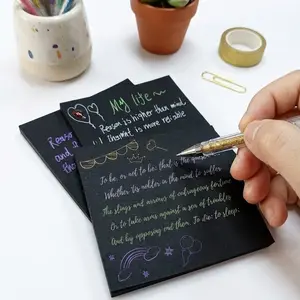 My life~
Reason is higher than mind
is more reliable
To be, or not to be, that is the
Whether 'tis nobler in the mind to suffer
The slings and arrows of outrageous fortune
Or to take arms against a sea of troubles
And by opposing end them. To die: to sleep.
Reason
and